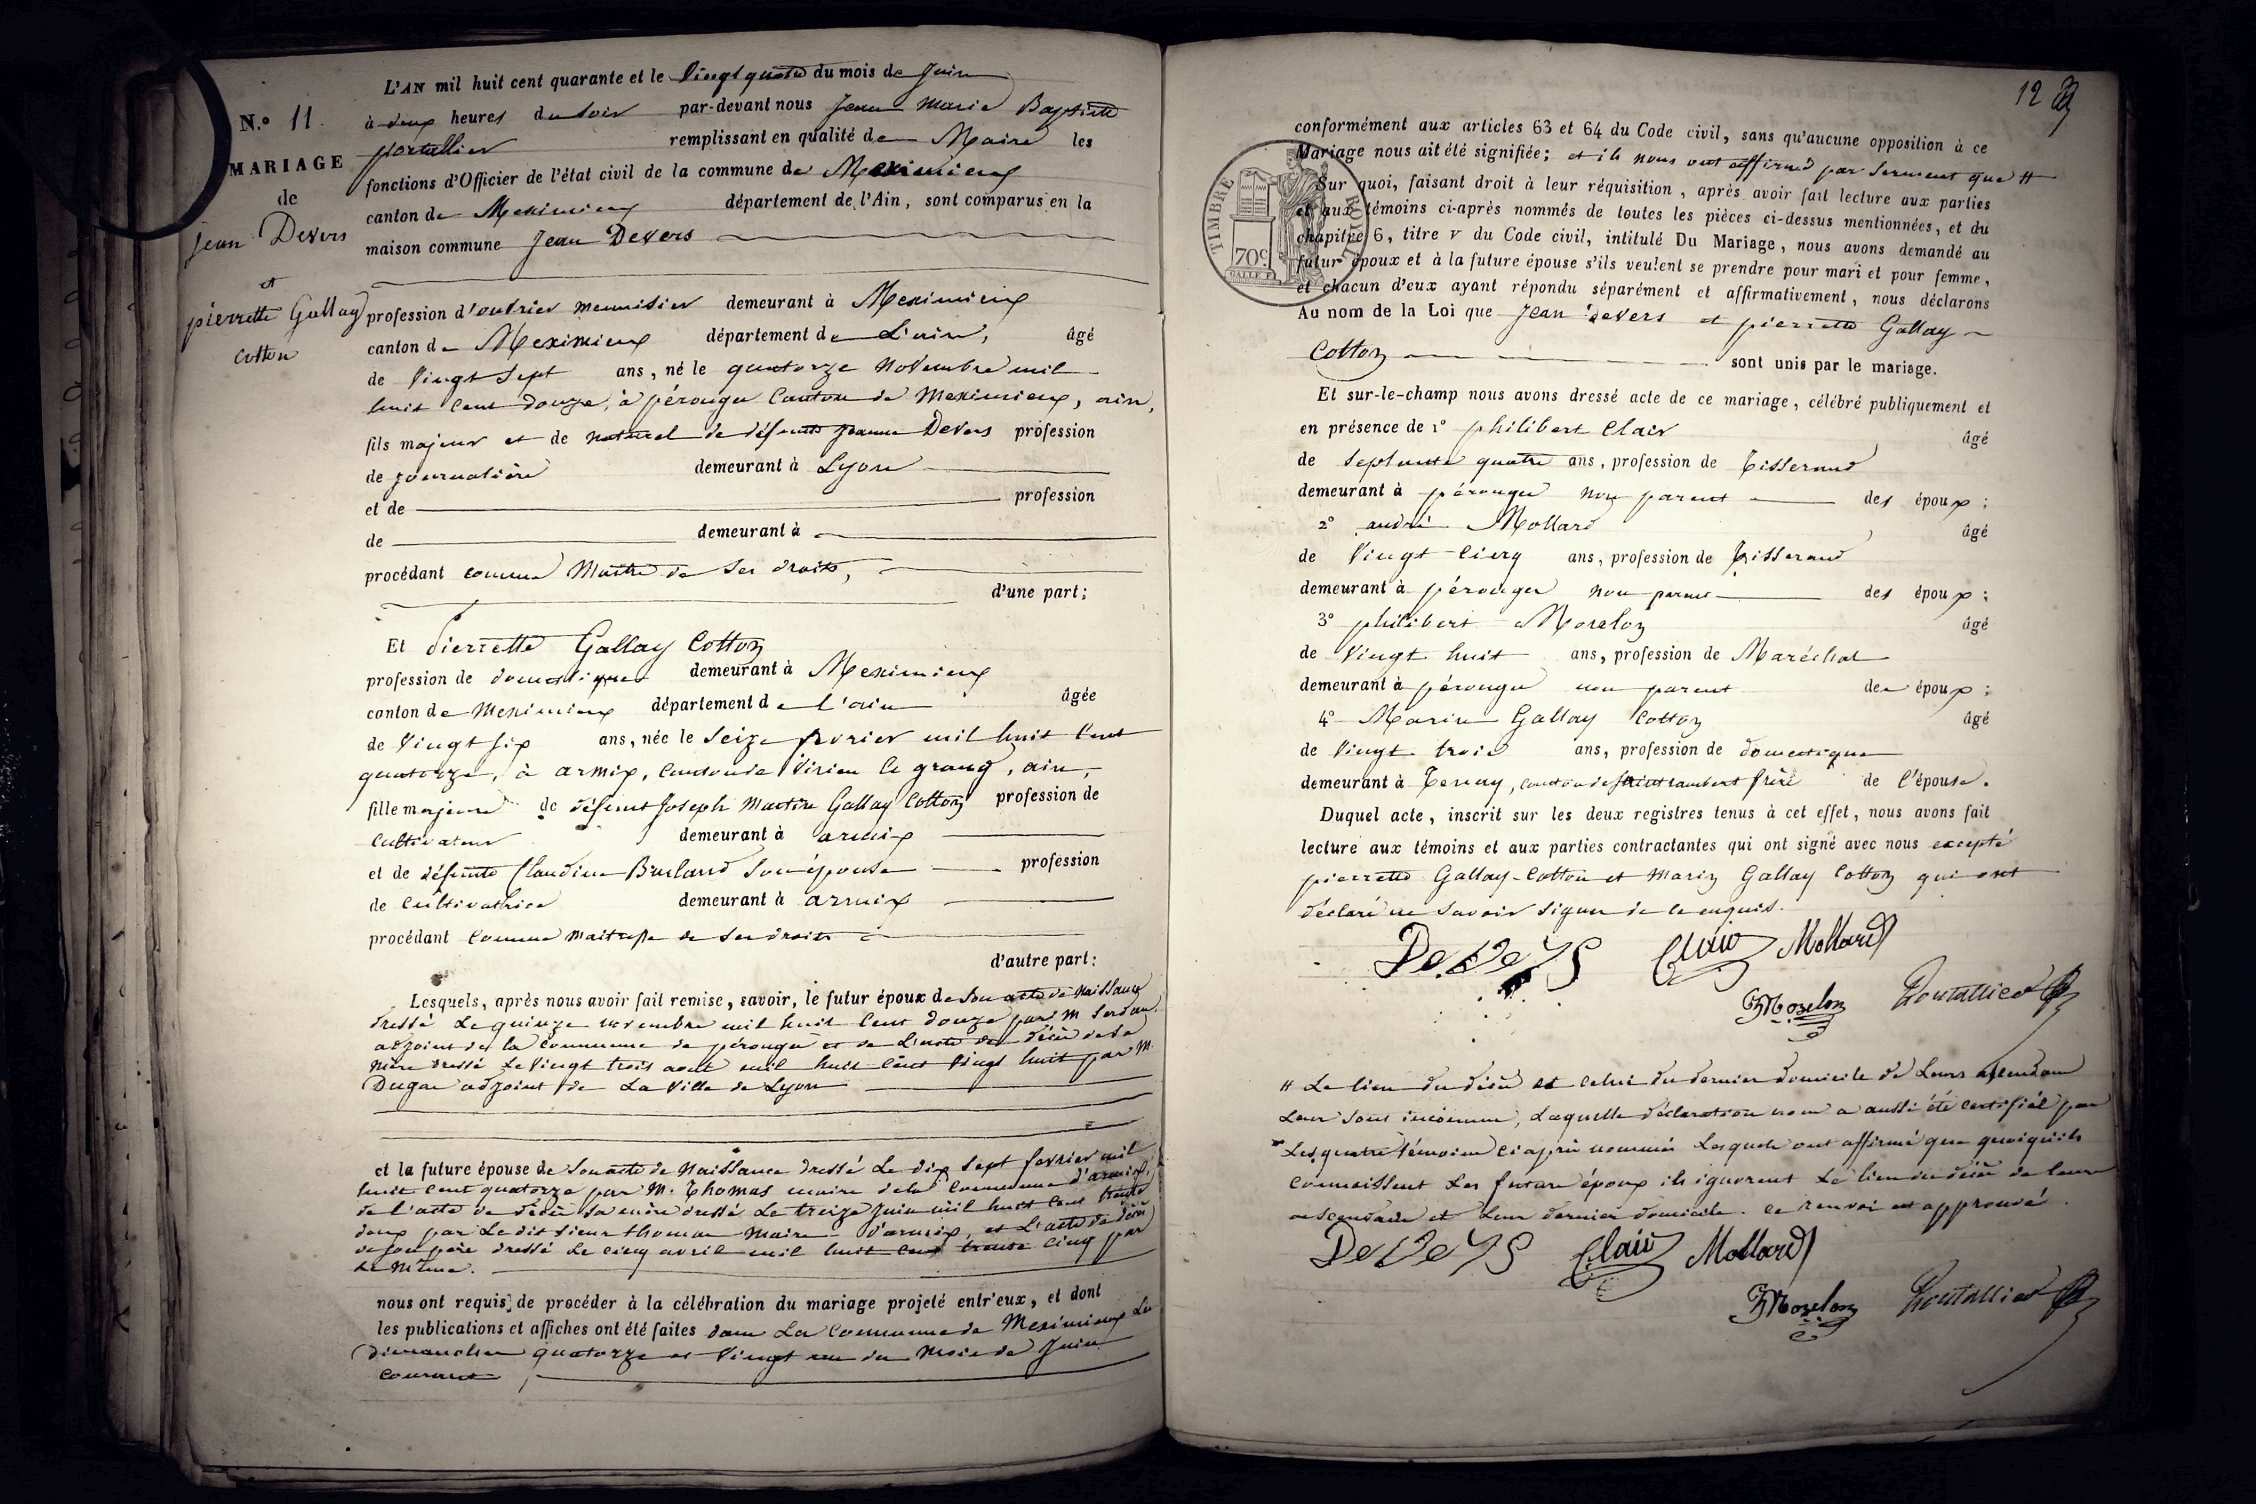 N.° 11
MARIAGE
de
Jean Devers
et
pierrette Gallay
Cotton
L'AN mil huit cent quarante et le Vingt quatre du mois de Juin
à deux heures du Soir par-devant nous Jean Marie Baptiste
portallier remplissant en qualité de Maire les
fonctions d'Officier de l'état civil de la commune de Meximieux
canton de Meximieux département de l'Ain, sont comparus en la
maison commune Jean Devers
profession d'ouvrier menuisier demeurant à Meximieux
canton de Meximieux département de L'ain, âgé
de Vingt Sept ans, né le quatorze Novembre mil
huit Cent douze, à pérouges Canton de Meximieux, ain,
fils majeur et de naturel de défunte Jeanne Devers profession
de journalière demeurant à Lyon
et de profession
de demeurant à
procédant comme Maître de Ses droits,
d'une part;
Et Pierrette Gallay Cotton
profession de domestique demeurant à Meximieux
canton de Meximieux département de l'ain âgée
de Vingt Six ans, née le Seize fevrier mil huit Cent
quatorze, à armix, Canton de Virieu le grand, ain,
fille majeure de défunt Joseph Martin Gallay Cotton profession de
Cultivateur demeurant à armix
et de défunte Claudine Burland Son épouse profession
de Cultivatrice demeurant à armix
procédant Comme maitresse de Ses droits
d'autre part:
Lesquels, après nous avoir fait remise, savoir, le futur époux de Son acte de Naissance
dressé Le quinze novembre mil huit Cent douze par M
adjoint de la Commune de pérouges et de L'acte de décès de Sa
Mère dressé Le Vingt trois aout mil huit Cent Vingt huit par M.
Dugas adjoint de La Ville de Lyon
et la future épouse de Son acte de Naissance dressé Le dix Sept fevrier mil
huit Cent quatorze par M. Thomas maire de la Commune d'armix,
de l'acte de décès Sa mère dressé Le treize Juin mil huit Cent trente
deux par Le dit Sieur thomas Maire d'armix, et L'acte de décès
de Son père dressé Le cinq avril mil huit Cent trente Cinq par
Le Même.
nous ont requis de procéder à la célébration du mariage projeté entr'eux, et dont
les publications et affiches ont été faites dans La Commune de Meximieux Les
dimanches quatorze et Vingt un du Mois de Juin
Courant
12
conformément aux articles 63 et 64 du Code civil, sans qu'aucune opposition à ce
Mariage nous ait été signifiée; et ils nous ont affirmé par Serment que #
TIMBRE ROYAL
70c
Sur quoi, faisant droit à leur réquisition, après avoir fait lecture aux parties
et aux témoins ci-après nommés de toutes les pièces ci-dessus mentionnées, et du
chapitre 6, titre V du Code civil, intitulé Du Mariage, nous avons demandé au
futur époux et à la future épouse s'ils veulent se prendre pour mari et pour femme,
et chacun d'eux ayant répondu séparément et affirmativement, nous déclarons
Au nom de la Loi que Jean devers et pierrette Gallay
Cotton sont unis par le mariage.
Et sur-le-champ nous avons dressé acte de ce mariage, célébré publiquement et
en présence de 1° philibert Clair âgé
de Septante quatre ans, profession de Tisserand
demeurant à pérouges non parent des époux;
2° andré Mollard âgé
de Vingt Cinq ans, profession de Tisserand
demeurant à pérouges non parent des époux;
3° philibert Morelon âgé
de Vingt huit ans, profession de Maréchal
demeurant à pérouges non parent des époux;
4° Marin Gallay Cotton âgé
de Vingt trois ans, profession de domestique
demeurant à Tenay, canton de Saint rambert frère de l'épouse.
Duquel acte, inscrit sur les deux registres tenus à cet effet, nous avons fait
lecture aux témoins et aux parties contractantes qui ont signé avec nous excepté
pierrette Gallay-Cotton et Marin Gallay Cotton qui ont
déclaré ne Savoir Signer de ce enquis.
DeVerS Clair Mollard
Morelon Portallier
# Le lieu du décès et Celui du dernier domicile de Leurs ascendans
Leur Sont inconnus, Laquelle déclaration nous a aussi été Certifiée par
Les quatre témoins Ci après nommés Lesquels ont affirmé que quoiqu'ils
Connaissent Les futurs époux ils ignorent Le lieu du décès de leurs
ascendants et Leur dernier domicile. Ce renvoi est approuvé.
DeVerS Clair Mollard
Morelon Portallier